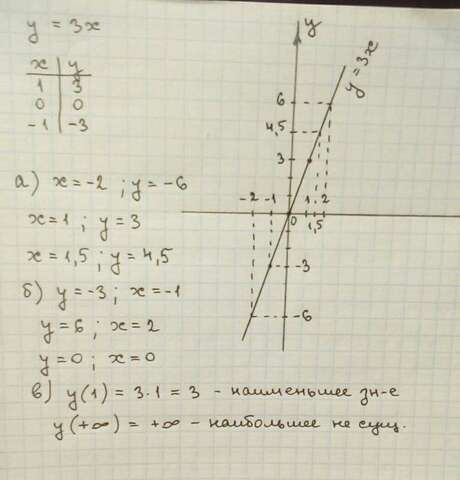 y = 3x
x | y
1 | 3
0 | 0
-1 | -3
а) x = -2 ; y = -6
x = 1 ; y = 3
x = 1,5 ; y = 4,5
б) y = -3 ; x = -1
y = 6 ; x = 2
y = 0 ; x = 0
в) y(1) = 3·1 = 3 - наименьшее зн-е
y(+∞) = +∞ - наибольшее не сущ.
y
y = 3x
6
4,5
3
-2 -1 0 1 1,5 2
-3
-6